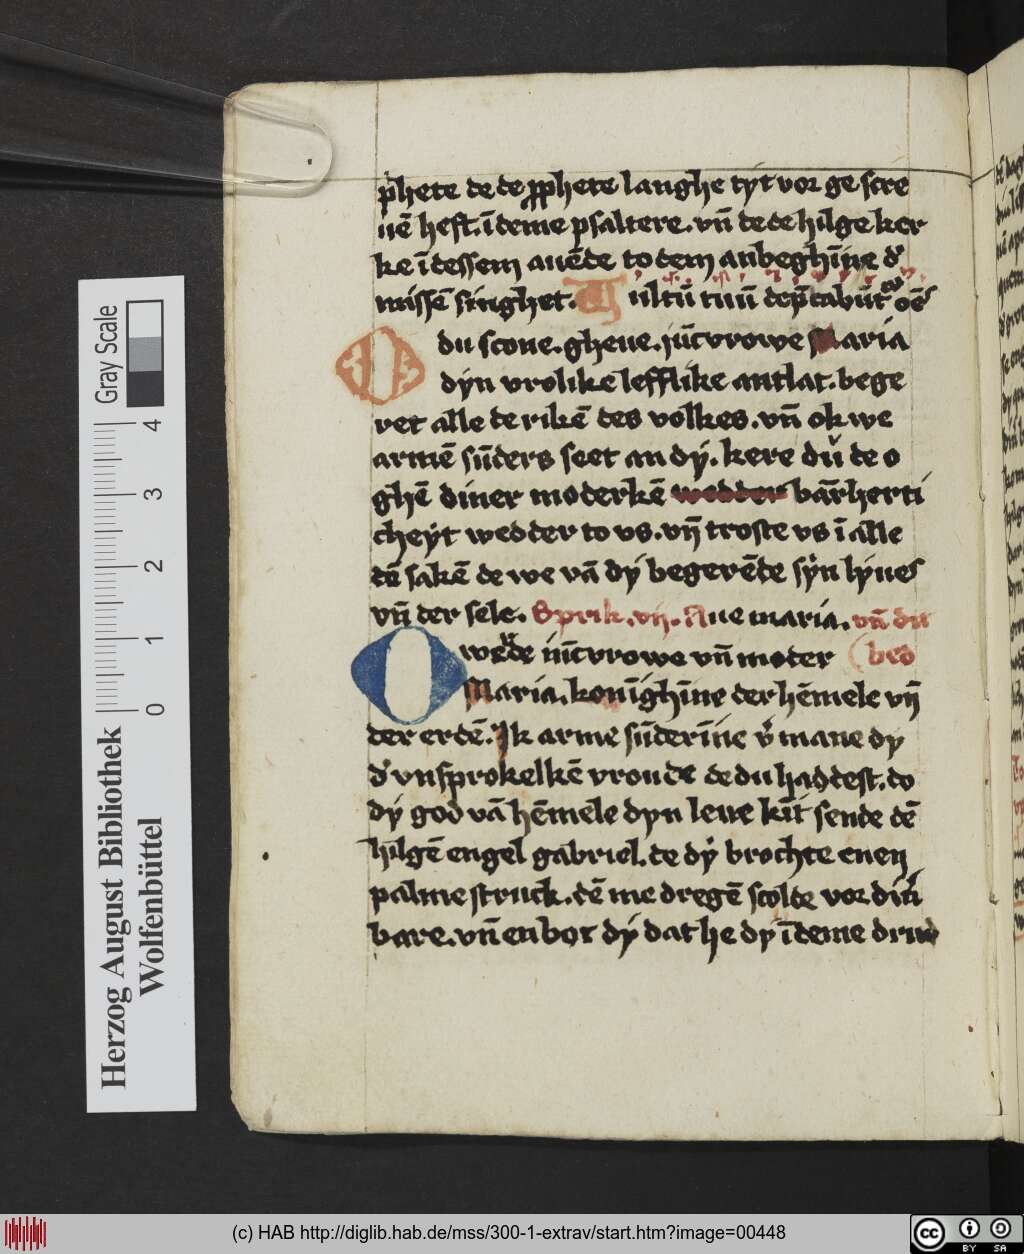 phete de de pphete langhe tyt vor ge scre
uē heft. ī deme psaltere. vn̄ de de hilge ker
ke ī dessem auēde to dem anbeghīne d'
missē singhet. Uultū tuū dep̄cabūt oēs
O du scone. gheue. jūcvrowe Maria
dyn vrolike lefflike antlat. bege
ret alle de rikē des volkes. vn̄ ok we
armē sūders seet an dy. kere du de o
ghē diner moderkē wedder bārherti
cheyt wedder to vs. vn̄ troste vs ī alle
dē sakē de we vā dy begerēde syn lyues
vn̄ der sele. Sprik. vij. Aue maria. vn̄ du
O werde iūcvrowe vn̄ moter
Maria. konīghīne der hēmele vn̄
der erdē. Ik arme sūderīne v' mane dy
d' vnsprokelkē vroude de du haddest. do
dy god vā hēmele dyn leue kīt sende dē
hilgē engel gabriel. de dy brochte enen
palme struck. dē me dregē scolde vor din'
bare. vn̄ en bot dy dat he dy ī deme drud
Gray Scale
0 1 2 3 4
Herzog August Bibliothek
Wolfenbüttel
(c) HAB http://diglib.hab.de/mss/300-1-extrav/start.htm?image=00448
cc BY SA